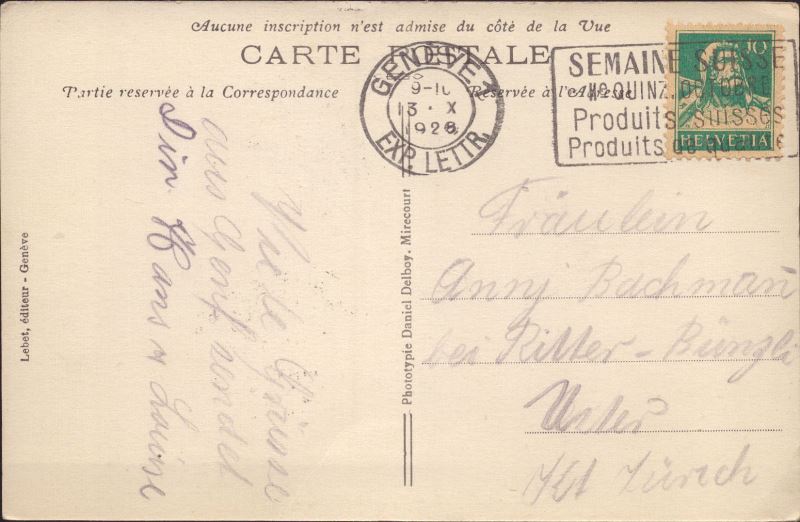 Aucune inscription n'est admise du côté de la Vue
CARTE POSTALE
Partie reservée à la Correspondance
Réservée à l'Adresse
GENÈVE 1
9-10
13. X
1928
EXP. LETTR.
SEMAINE SUISSE
QUINZ.
Produits suisses
Produits de qualité
10
HELVETIA
Lebet, éditeur - Genève
Grüsse
aus Genf sendet
Hans & Louise
Phototypie Daniel Delboy, Mirecourt
Fräulein
Anny Bachman
bei Ritter-Bünzli
Uster
Kt Zürich